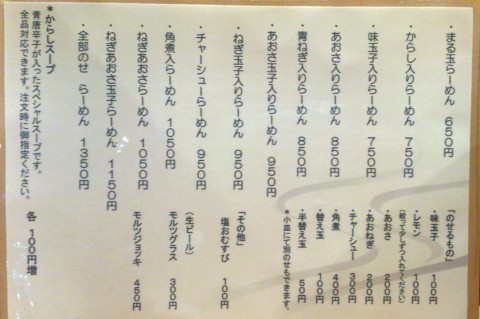 ・まる玉らーめん 650円
・からし入りらーめん 750円
・味玉子入りらーめん 750円
・あおさ入りらーめん 850円
・青ねぎ入りらーめん 850円
・あおさ玉子入りらーめん 950円
・ねぎ玉子入りらーめん 950円
・チャーシューらーめん 950円
・角煮入らーめん 1050円
・ねぎあおさらーめん 1050円
・ねぎあおさ玉子らーめん 1150円
・全部のせ らーめん 1350円
*からしスープ
青唐辛子が入ったスペシャルスープです。
全品対応できます。注文時に御指定ください。
各 100円増
「のせるもの」
・味玉子 100円
・レモン 100円
(絞って少しずつ入れてください)
・あおさ 200円
・あおねぎ 200円
・チャーシュー 300円
・角煮 400円
・替え玉 100円
・半替え玉 50円
*小皿にて別のせもできます。
「その他」
塩おむすび 100円
(生ビール)
モルツグラス 300円
モルツジョッキ 450円